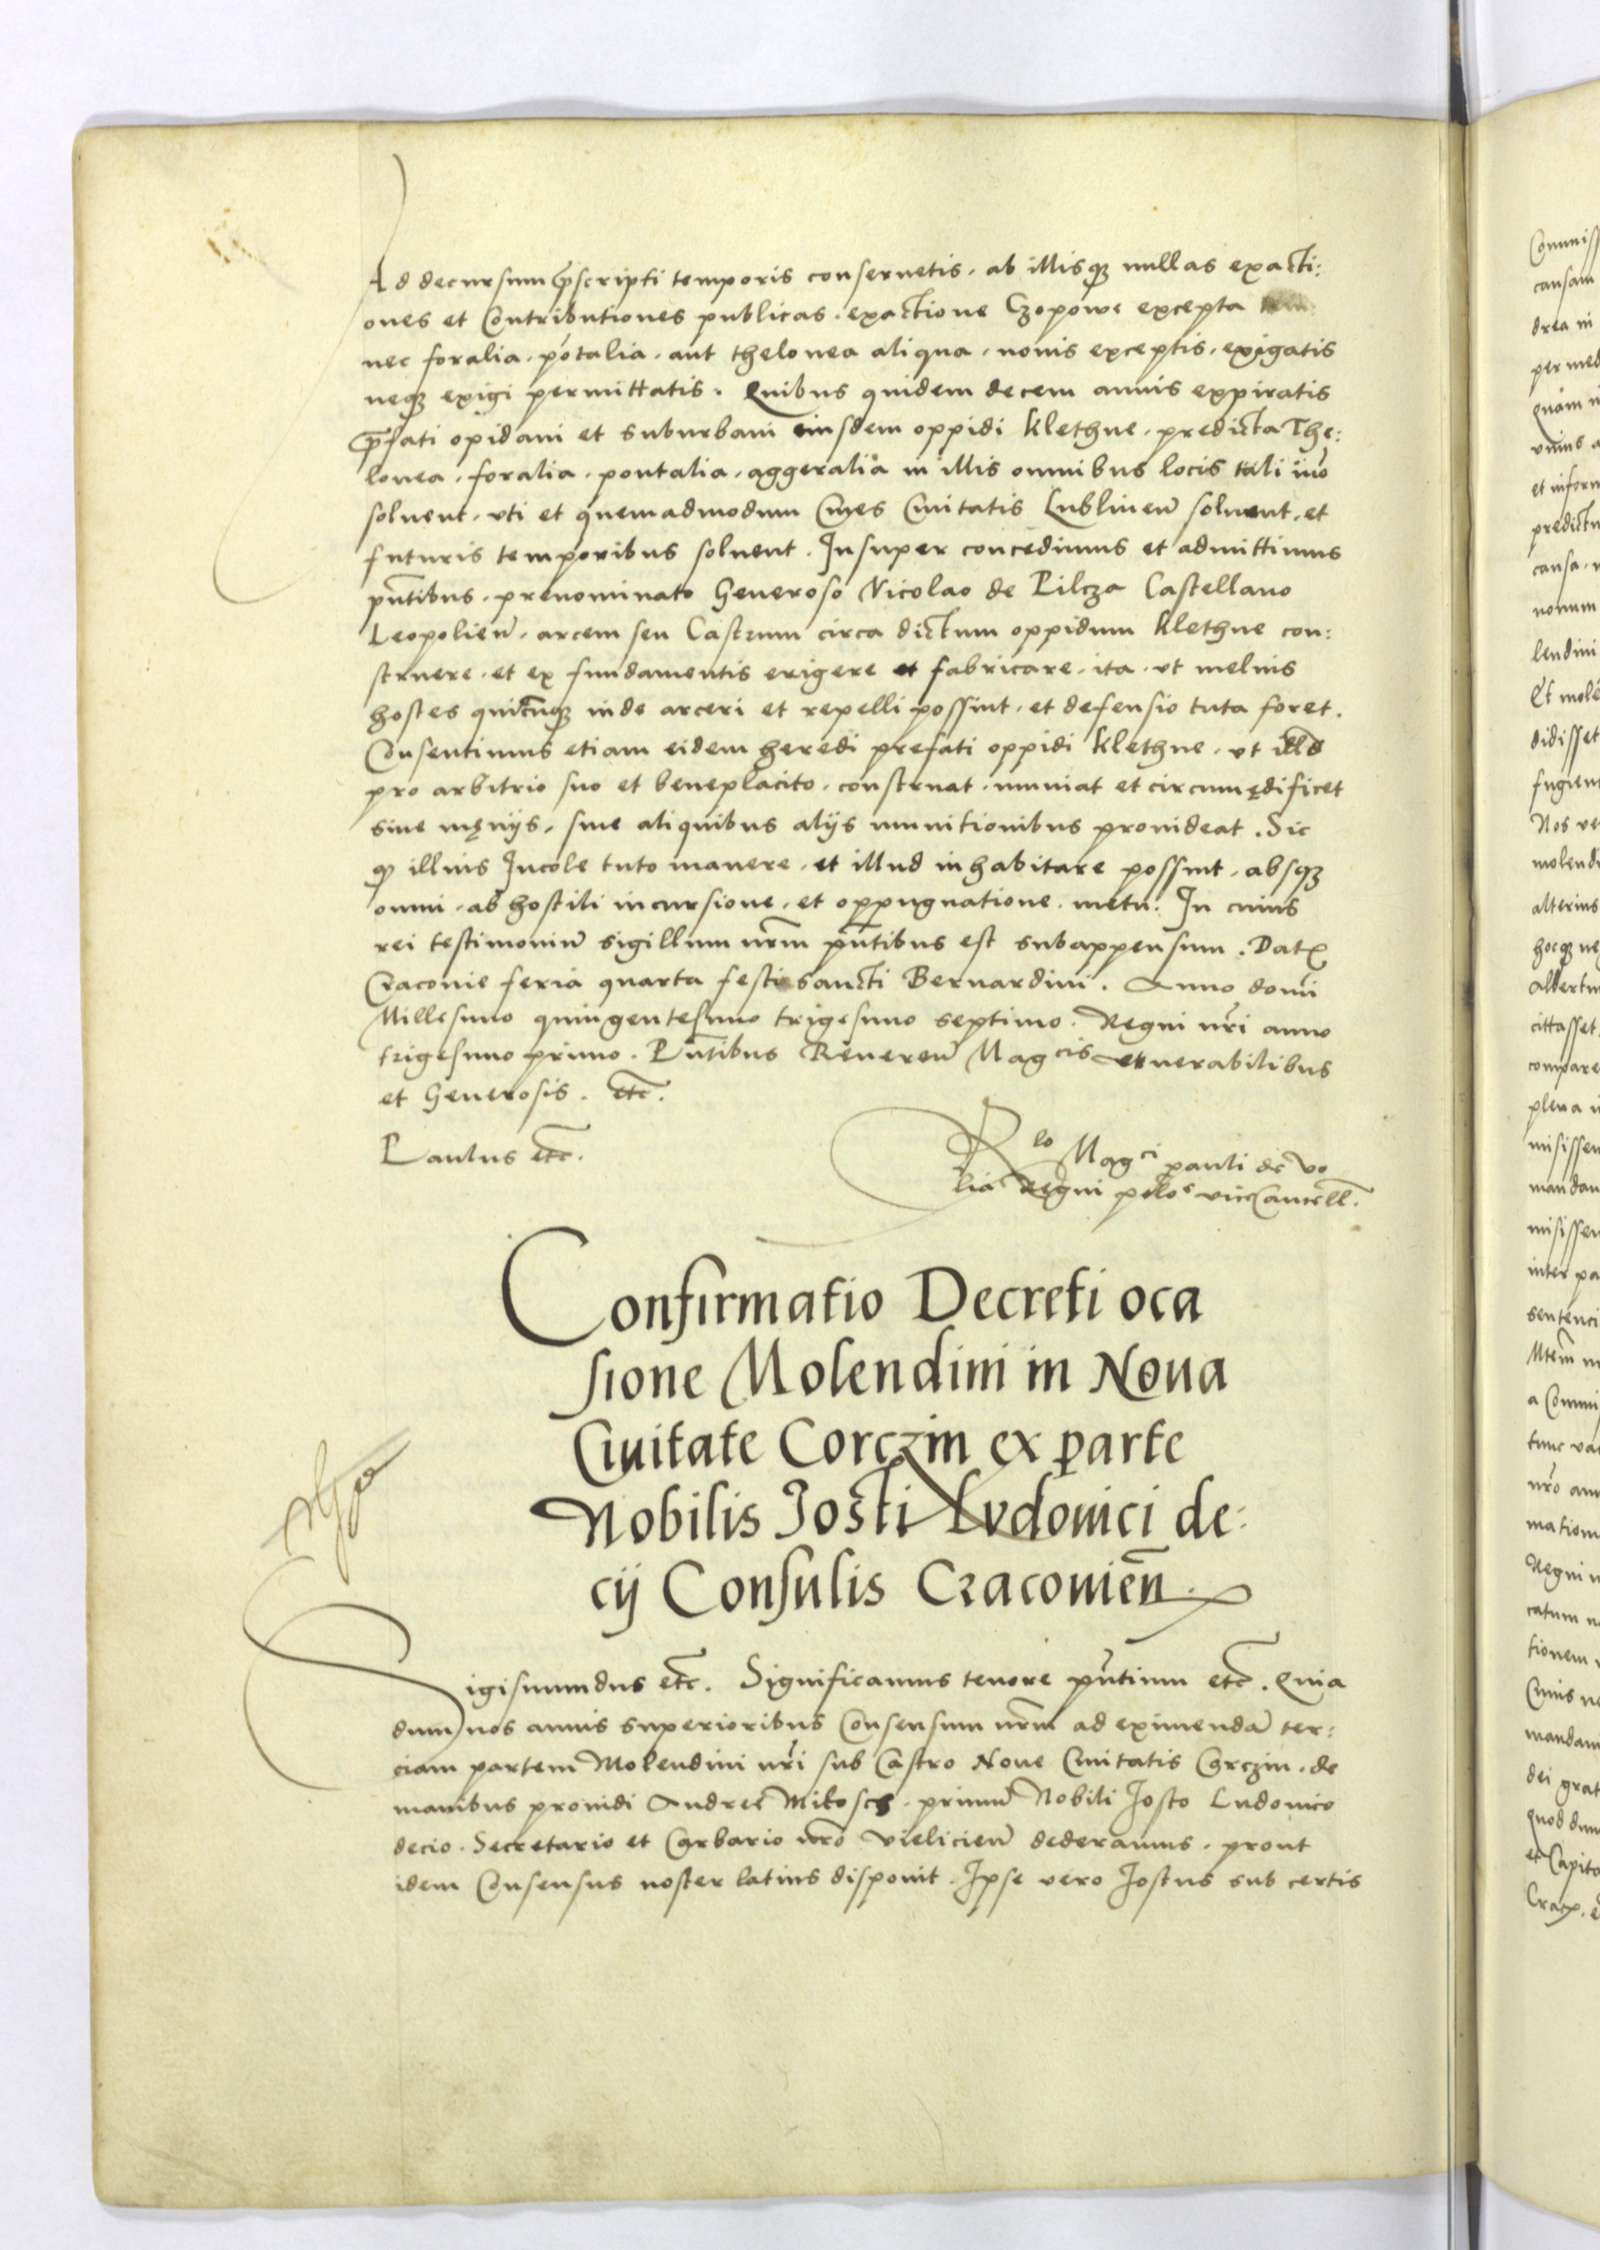 Ad decursum p̄scripti temporis conseruetis, ab illisqz nullas exacti:
ones et Contributiones publicas, exactione Czopowe excepta
nec foralia, pōtalia, aut thelonea aliqva, nouis exceptis, exigatis
neqz exigi permittatis. Quibus quidem decem annis expiratis
p̄fati opidani et suburbani eiusdem oppidi Klethne, predicta The:
lonea, foralia, pontalia, aggeralia in illis omnibus locis tali mō
soluent, vti et quemadmodum Ciues Ciuitatis Lublineñ soluunt, et
futuris temporibus soluent. Insuper concedimus et admittimus
pñtibus, prenominato Generoso Nicolao de Pilcza Castellano
Leopolieñ, arcem seu Castrum circa dictum oppidum Klethne con:
struere, et ex fundamentis erigere et fabricare, ita, vt melius
hostes quicūqz inde arceri et repelli possint, et defensio tuta foret.
Consentimus etiam eidem heredi prefati oppidi Klethne, vt illd
pro arbitrio suo et beneplacito, construat, muniat et circumędificet
siue męnijs, siue aliquibus alijs munitionibus prouideat. Sic
qz illius Incole tuto manere, et illud inhabitare possint, absqz
omni, ab hostili incursione, et oppugnatione, metu: In cuius
rei testimoniū sigillum nr̄m pñtibus est subappensum. Dat
Cracouie feria quarta festi sancti Bernardini. Anno domi
Millesimo quingentesimo trigesimo septimo. Regni nr̄i anno
trigesimo primo. Pñtibus Reuereñ Magcis venerabilibus
et Generosis. etc̄.
Paulus etc̄.
Rlo Magci pauli de Vo
lia Regni polōe viceCancell.
Confirmatio Decreti oca
sione Molendini in Noua
Ciuitate Corczin ex parte
Nobilis Josti Ludouici de:
cij Consulis Cracouieñ.
Sigismundus etc̄. Significamus tenore pñtium etc̄. Quia
dum nos annis superioribus Consensum nr̄m ad eximendā ter:
ciam partem Molendini nr̄i sub Castro Noue Ciuitatis Corczin, de
manibus prouidi Andree Mikosch, primū Nobili Josto Ludouico
decio, Secretario et Carbario nr̄o Vielicieñ dederamus, prout
idem Consensus noster latius disponit. Ipse vero Jostus sub certis